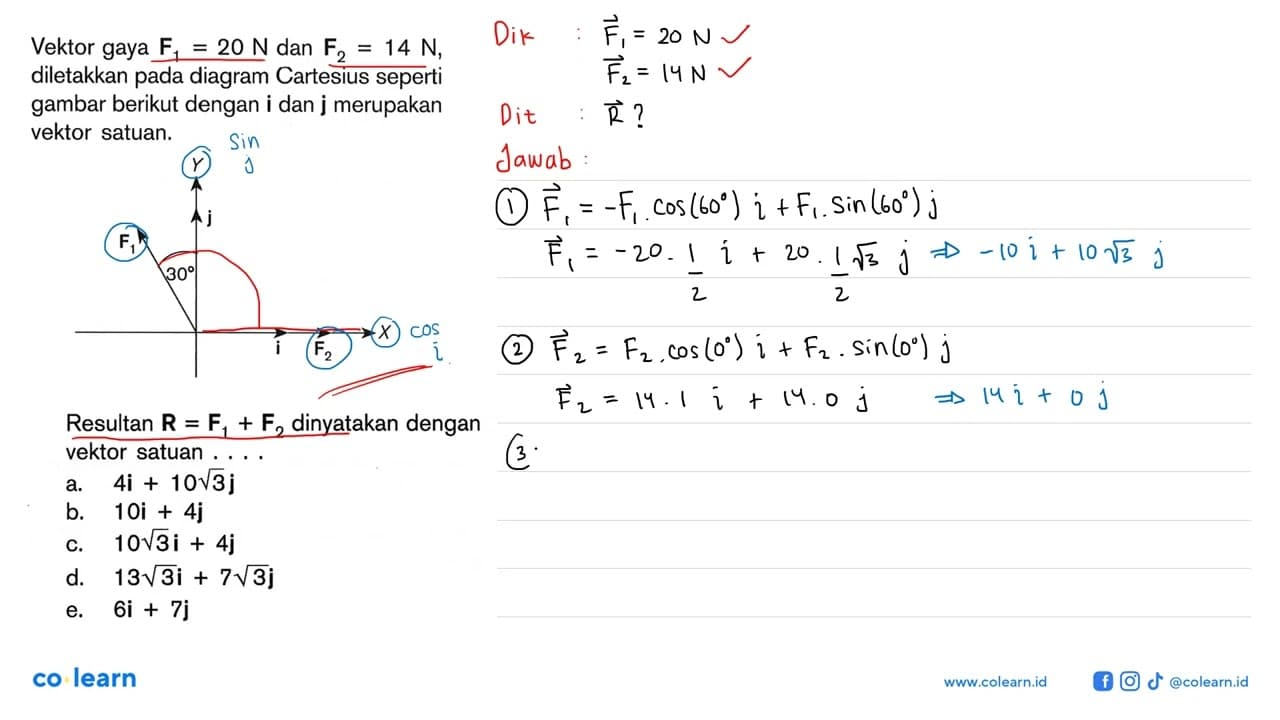 Vektor gaya F₁ = 20 N dan F₂ = 14 N,
diletakkan pada diagram Cartesius seperti
gambar berikut dengan i dan j merupakan
vektor satuan.
Sin
j
Y
j
F₁
30°
X
cos
i
i
F₂
Resultan R = F₁ + F₂ dinyatakan dengan
vektor satuan . . . .
a. 4i + 10√3j
b. 10i + 4j
c. 10√3i + 4j
d. 13√3i + 7√3j
e. 6i + 7j
Dik : F⃗₁ = 20 N ✓
F⃗₂ = 14 N ✓
Dit : R⃗ ?
Jawab :
① F⃗₁ = -F₁ . cos(60°) i + F₁ . Sin(60°) j
F⃗₁ = -20 . 1/2 i + 20 . 1/2 √3 j ⇒ -10 i + 10√3 j
② F⃗₂ = F₂ . cos(0°) i + F₂ . sin(0°) j
F⃗₂ = 14 . 1 i + 14 . 0 j ⇒ 14 i + 0 j
3.
co learn
www.colearn.id
@colearn.id